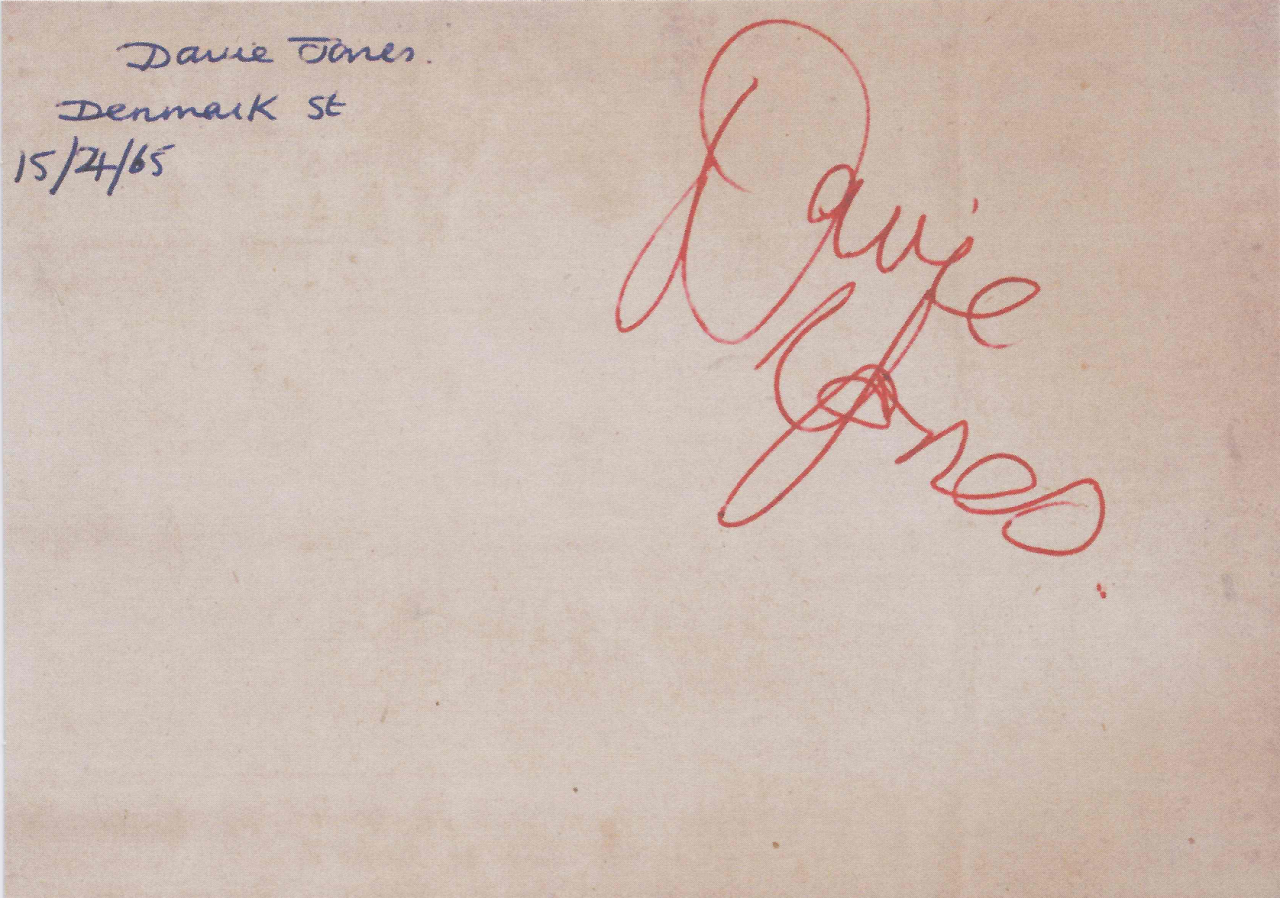 Davie Jones.
Denmark St
15/4/65
Davie
Jones.